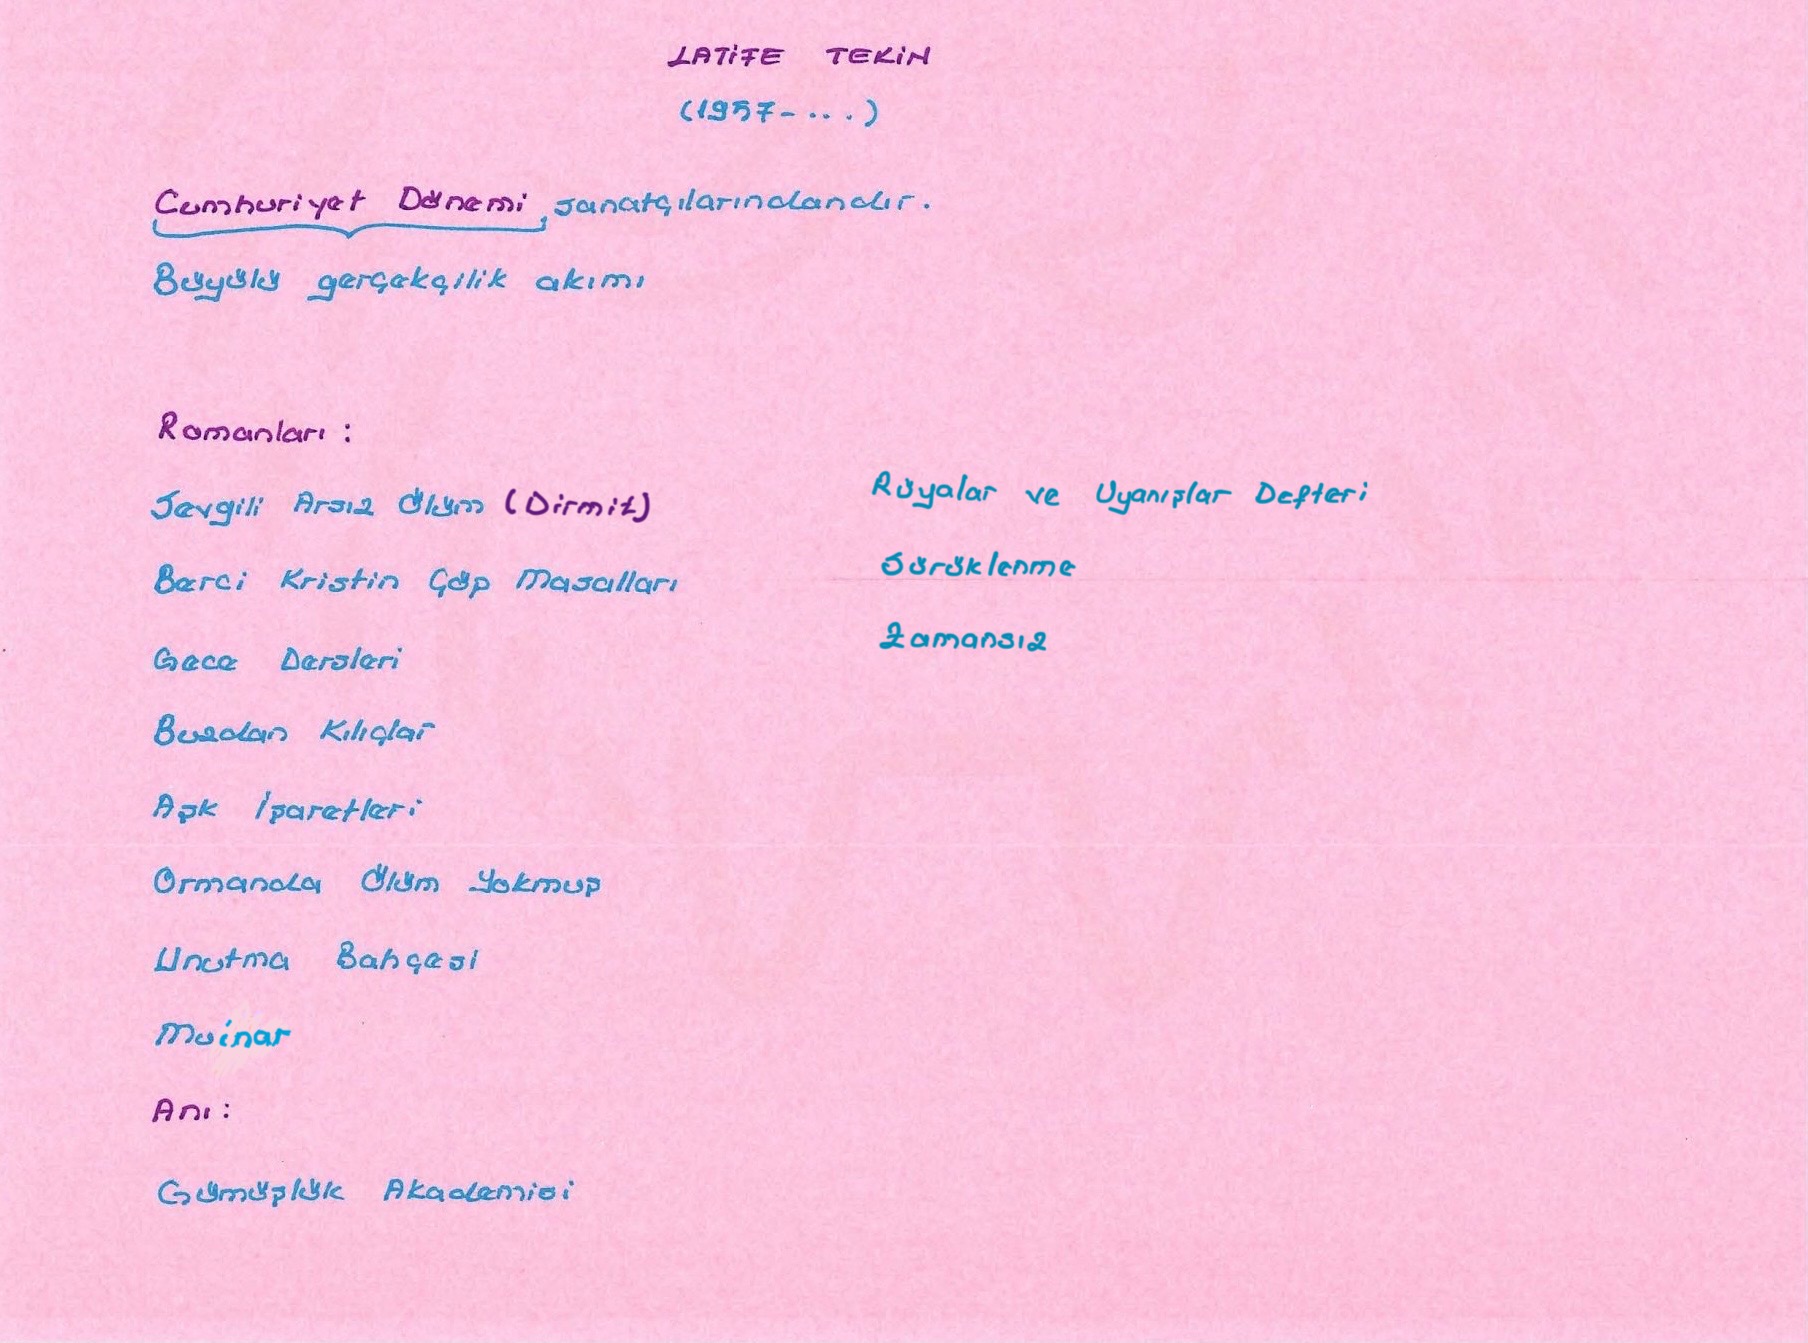 LATİFE TEKİN
(1957-....)
Cumhuriyet Dönemi sanatçılarındandır.
Büyülü gerçekçilik akımı
Romanları :
Sevgili Arsız Ölüm (Dirmit)
Berci Kristin Çöp Masalları
Gece Dersleri
Buzdan Kılıçlar
Aşk İşaretleri
Ormanda Ölüm Yokmuş
Unutma Bahçesi
Muinar
Anı :
Gümüşlük Akademisi
Rüyalar ve Uyanışlar Defteri
Sürüklenme
Zamansız